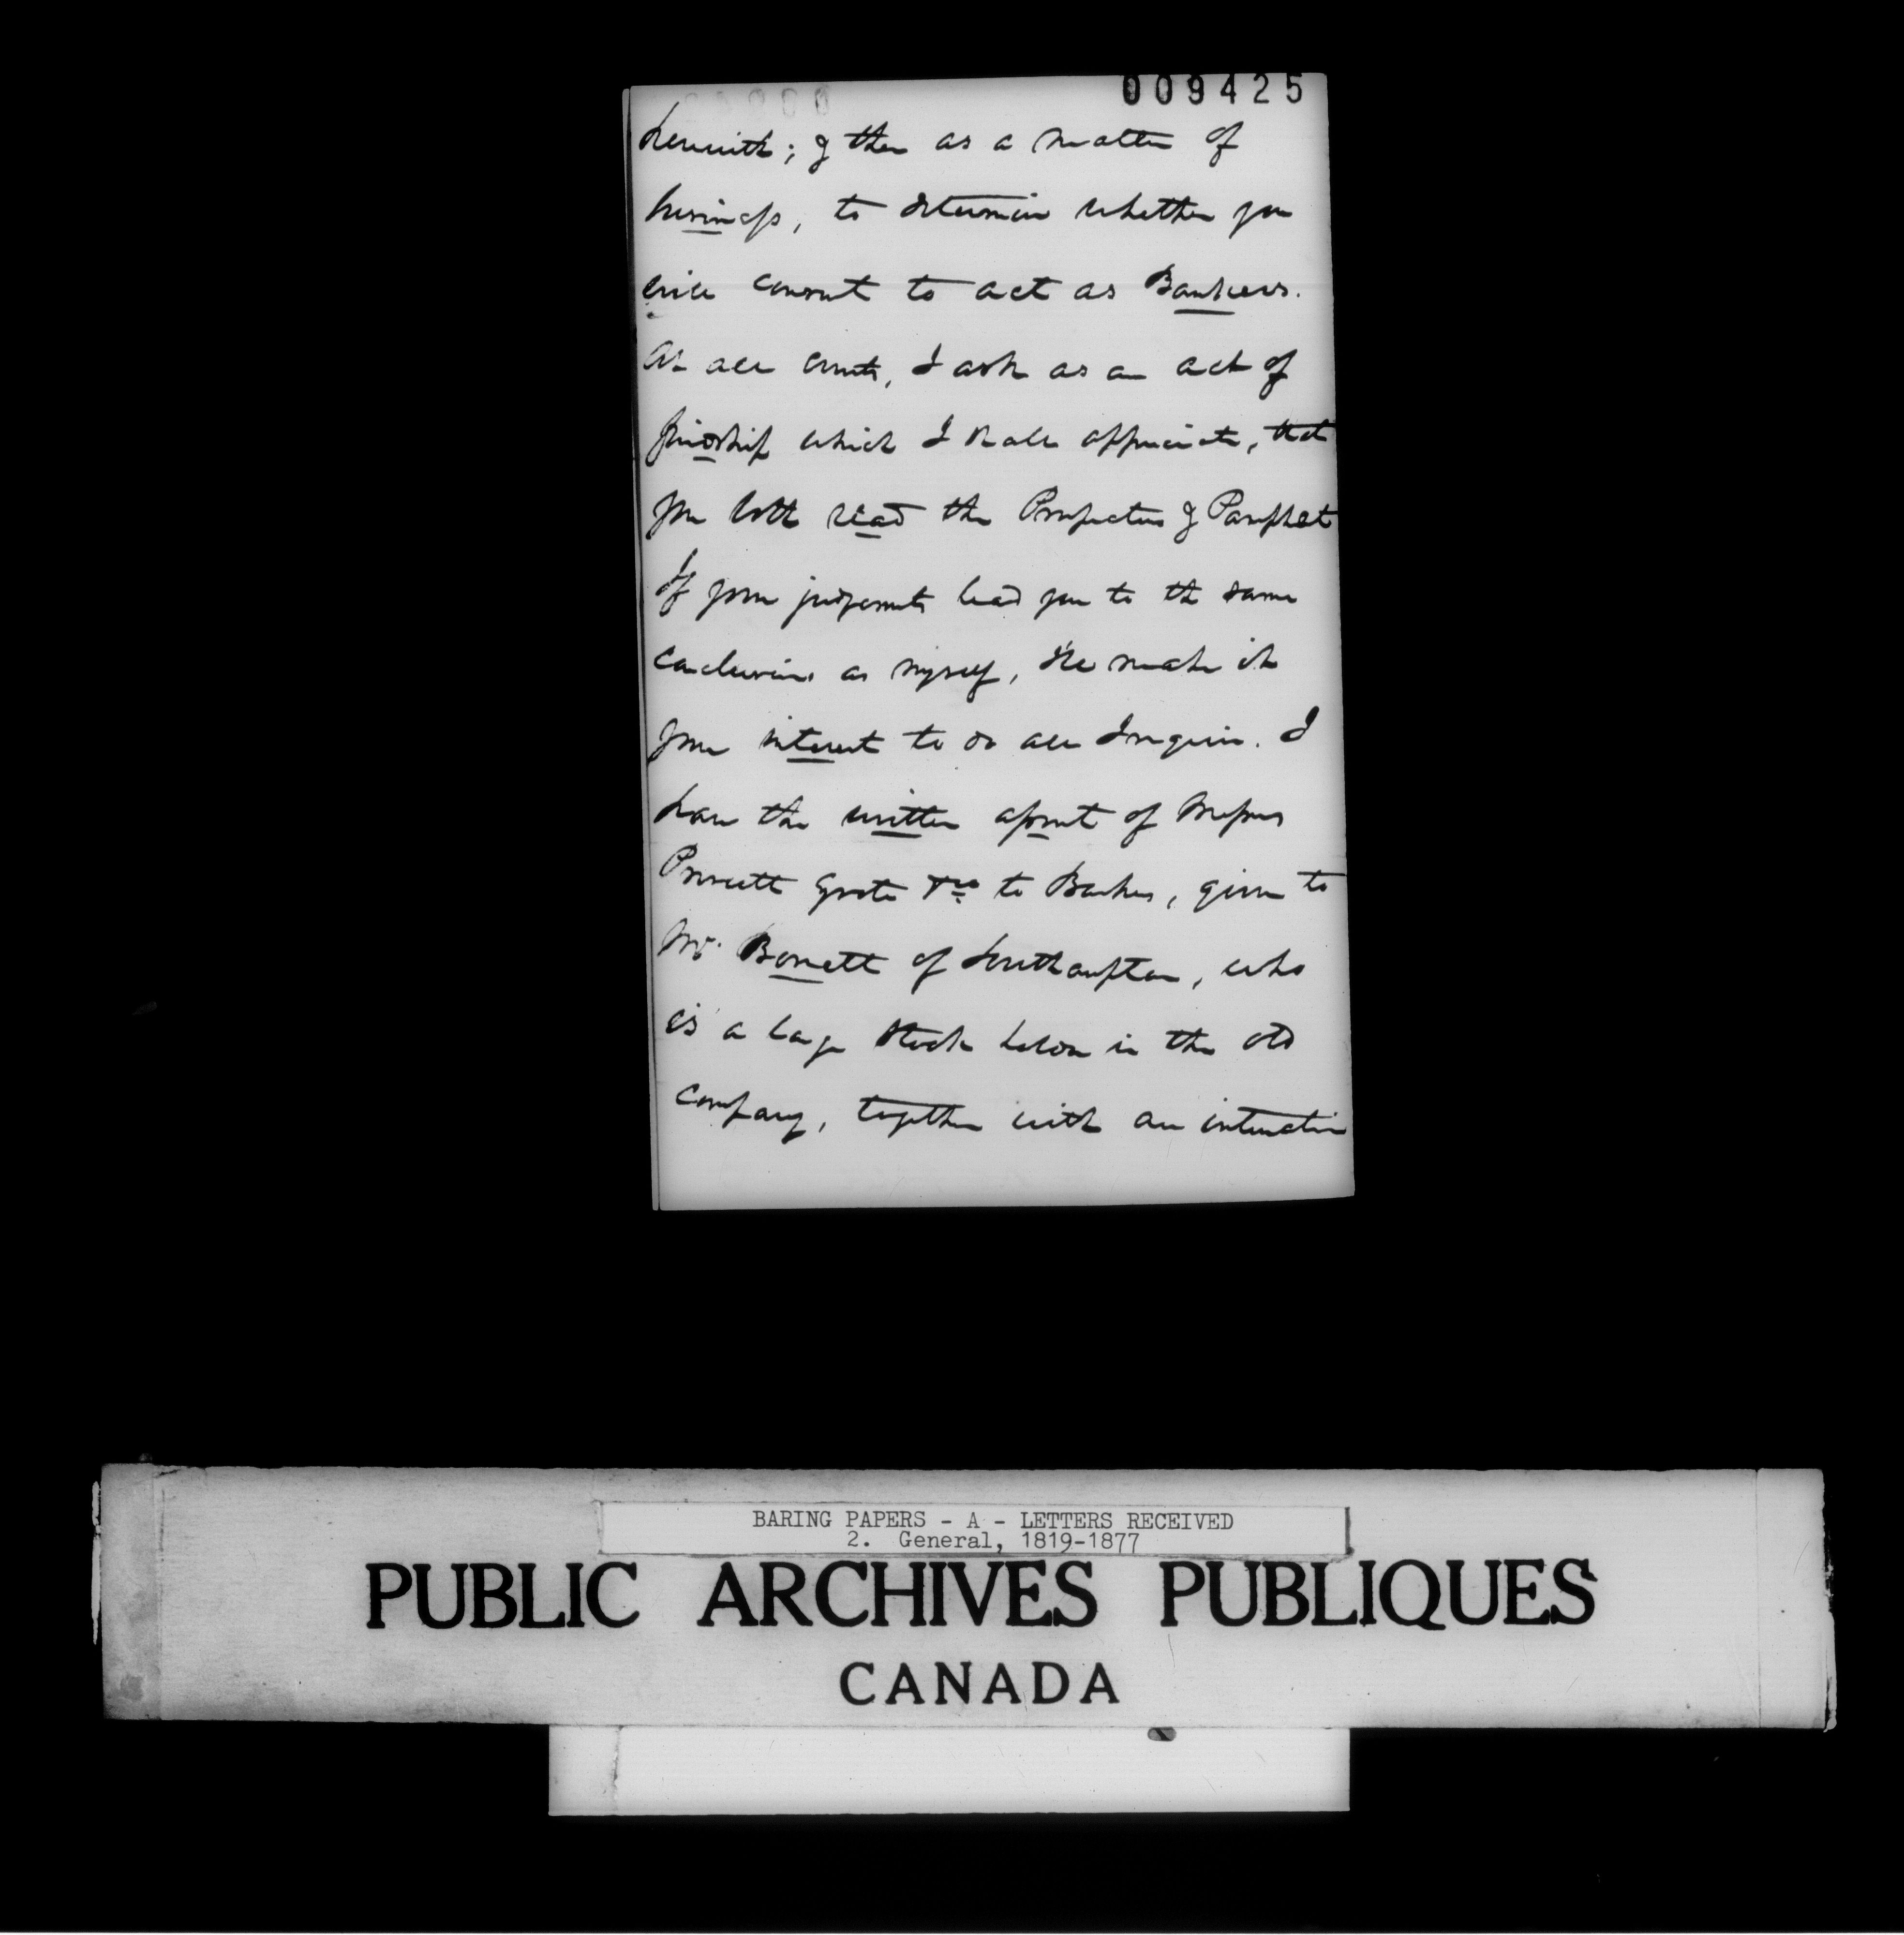 009425
herewith; & then as a matter of
business, to determine whether you
will consent to act as Bankers.
At all events, I ask as an act of
friendship which I shall appreciate, that
you both read the Prospectus & Pamphlet
If your judgments lead you to the same
conclusions as myself, I'll make it
your interest to do all I require. I
have the written assent of Messrs
Prescott Grote & Co to Bankers, given to
Mr. Bonett of Southampton, who
is a large Stock holder in the old
Company, together with an
BARING PAPERS - A - LETTERS RECEIVED
2. General, 1819-1877
PUBLIC ARCHIVES PUBLIQUES
CANADA